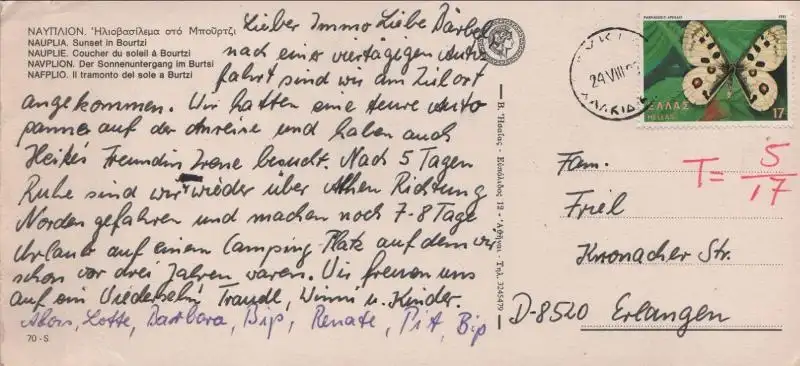 ΝΑΥΠΛΙΟΝ. Ἡλιοβασίλεμα στό Μπούρτζι
NAUPLIA. Sunset in Bourtzi
NAUPLIE. Coucher du soleil à Bourtzi
NAVPLION. Der Sonnenuntergang im Burtsi
NAFPLIO. Il tramonto del sole a Burtzi
Lieber Immo Liebe Bärbel
nach einer viertägigen Auto
fahrt sind wir am Zielort
angekommen. Wir hatten eine teure Auto
panne auf der Anreise und haben auch
Heikes Freundin Irene besucht. Nach 5 Tagen
Ruhe sind wir wieder über Athen Richtung
Norden gefahren und machen noch 7-8 Tage
Urlaub auf einem Camping-Platz auf dem wir
schon vor drei Jahren waren. Wir freuen uns
auf ein Wiedersehn Traudl, Winni u. Kinder.
Alois, Lotte, Barbara, Bip, Renate, Pit, Bip
70-S
Β. Ἡσαΐας - Εὐπόλιδος 12 - Ἀθῆναι - Τηλ. 3245479
24 VIII
ΧΑΛΚΙΔ
PARNASSIUS APOLLO
1981
ΕΛΛΑΣ
HELLAS
17
T = 5/17
Fam.
Friel
Kronacher Str.
D-8520 Erlangen